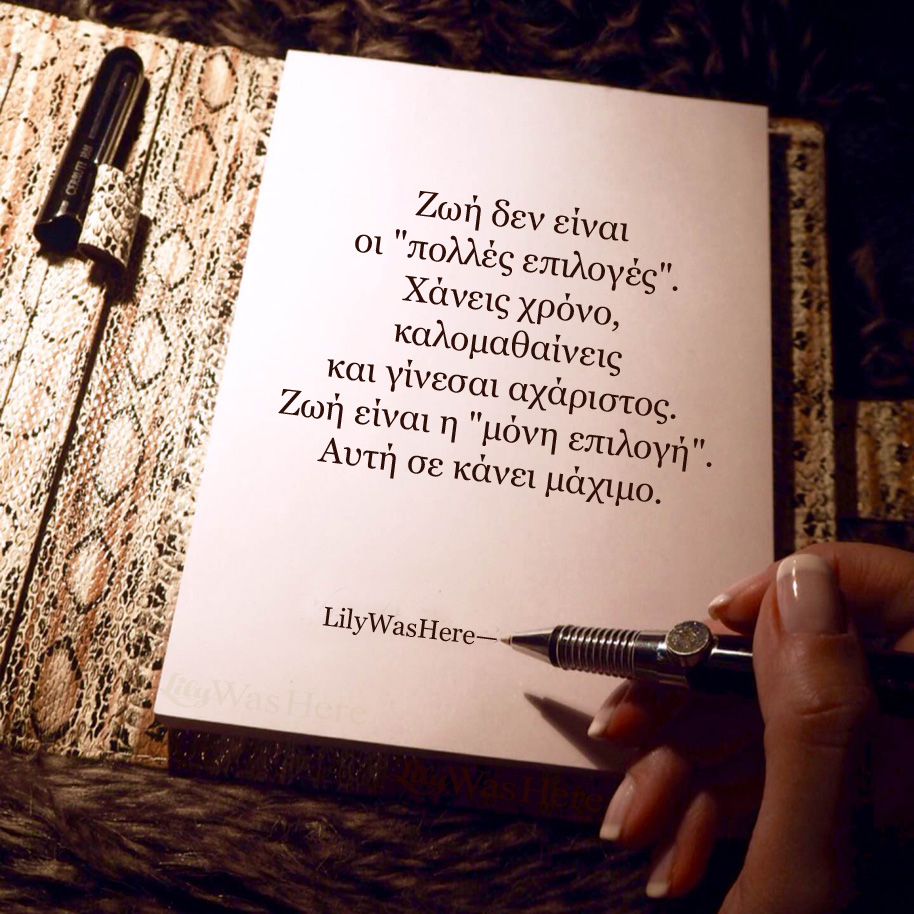 Ζωή δεν είναι
οι "πολλές επιλογές".
Χάνεις χρόνο,
καλομαθαίνεις
και γίνεσαι αχάριστος.
Ζωή είναι η "μόνη επιλογή".
Αυτή σε κάνει μάχιμο.
LilyWasHere—
LilyWasHere
LilyWasHere
CERRUTI 1881